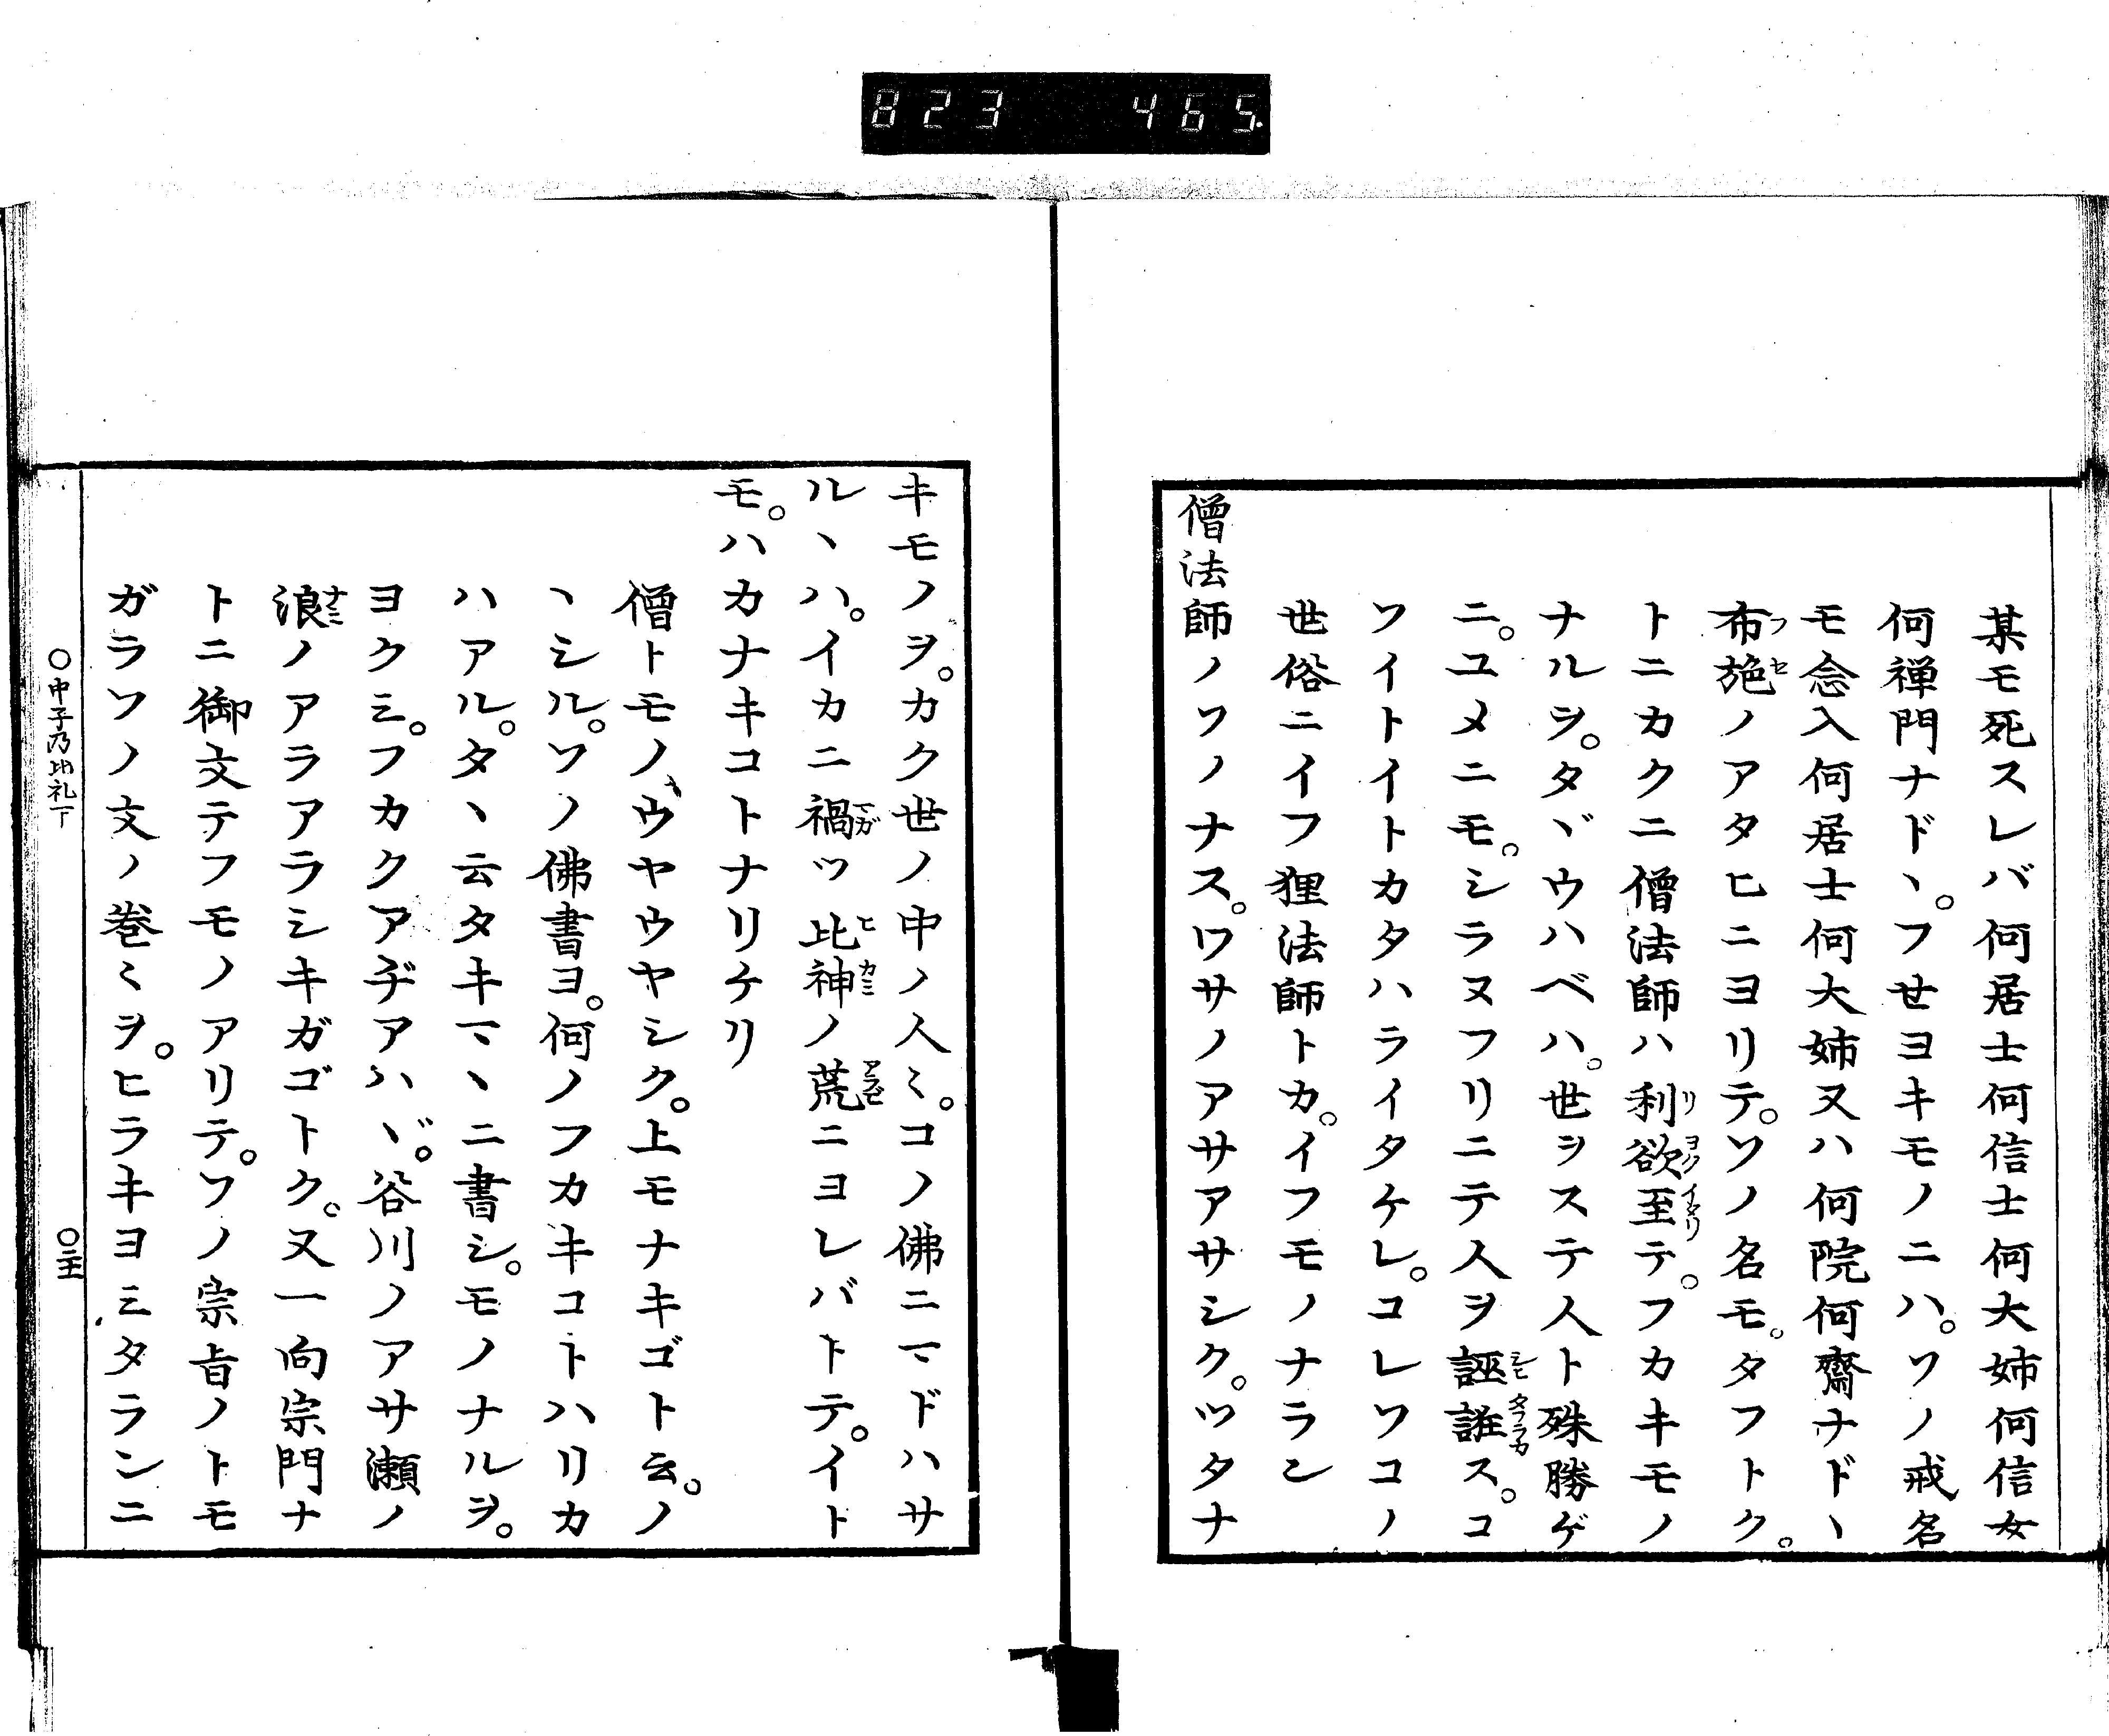 823 465
某モ死スレバ何居士何信士何大姉何信女
何禅門ナドヽ。フせヨキモノニハ。ソノ戒名
モ念入何居士何大姉又ハ何院何齋ナドヽ
布施フセノアタヒニヨリテ。ソノ名モ。タフトク。
トニカクニ僧法師ハ利欲リヨク至イタリテ。フカキモノ
ナルヲ。タヾウハベハ。世ヲステ人ト殊勝ゲ
ニ。ユメニモ。シラヌフリニテ人ヲ誣シヒ誑タフラカス。コ
ソイトイトカタハライタケレ。コレソコノ
世俗ニイフ狸法師トカ。イフモノナラン
僧法師ノソノナス。ワサノアサアサシク。ツタナ
キモノヲ。カク世ノ中ノ人〻。コノ佛ニマドハサ
ルヽハ。イカニ禍マガツ比ヒ神カミノ荒アラビニヨレバトテ。イト
モ。ハカナキコトナリケリ
僧トモノヽウヤウヤシク。上モナキゴト云。ノ
ヽシル。ソノ佛書ヨ。何ノフカキコトハリカ
ハアル。タヽ云タキマヽニ書シ。モノナルヲ。
ヨクミ。フカクアヂアハヽヾ。谷川ノアサ瀬ノ
浪ナミノアラアラシキガゴトク。又一向宗門ナ
トニ御文テフモノアリテ。ソノ宗旨ノトモ
ガラソノ文ノ巻〻ヲ。ヒラキヨミタランニ
○中子乃比礼下 ○二十五